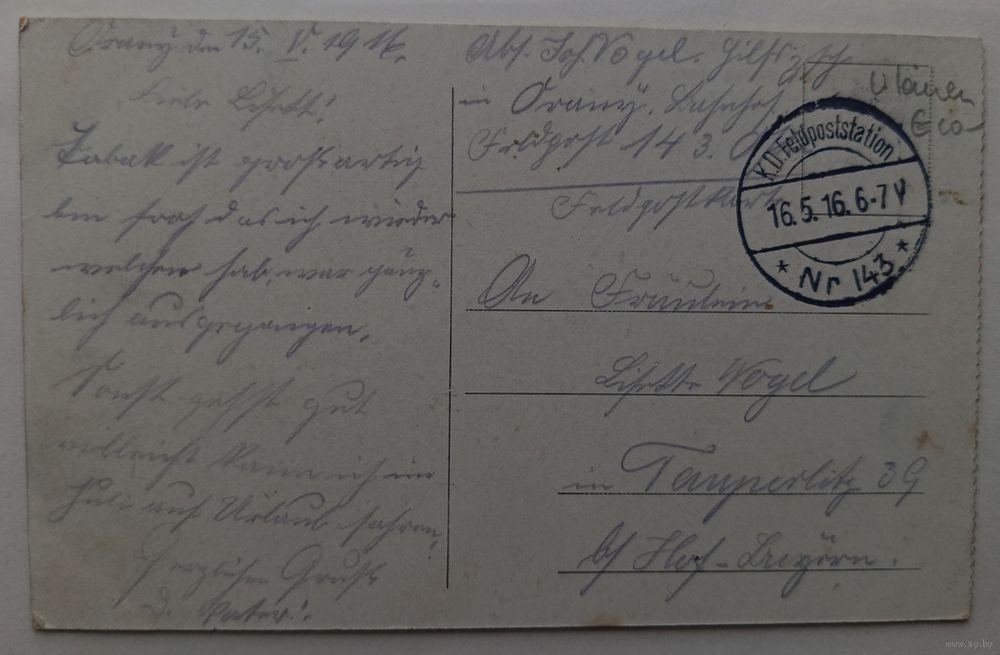 Orany den 15. V. 1916.
Liebe Lisett!
Tabak ist grossartig
bin froh das ich wieder
welchen hab, war gänz-
lich ausgegangen.
Sonst gehts gut
vielleicht kann ich im
Juli auf Urlaub fahren,
Herzlichen Gruss
D. Vater!
Abs. Joh. Vogel.
in Orany, Bahnhof
Feldpost 143.
Feldpostkarte
An Fräulein
Lisette Vogel
in Tauperlitz 39
b/ Hof - Bayern.
K.D. Feldpoststation
16.5.16. 6-7 V
* Nr 143 *
Ulanen
www.ay.by